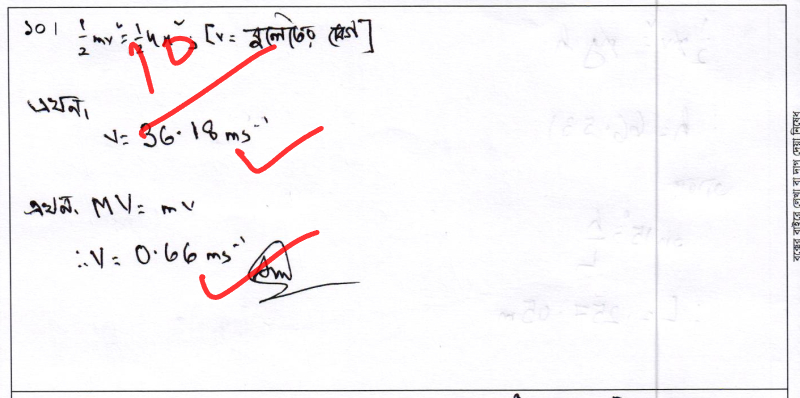 ১০। ½mv² = ½kx² ; [v = বুলেটের বেগ]
10
এখন,
v = 36.18 ms⁻¹
এখন, MV = mv
∴ V = 0.66 ms⁻¹
Am
বক্সের বাইরে লেখা বা দাগ দেয়া নিষেধ